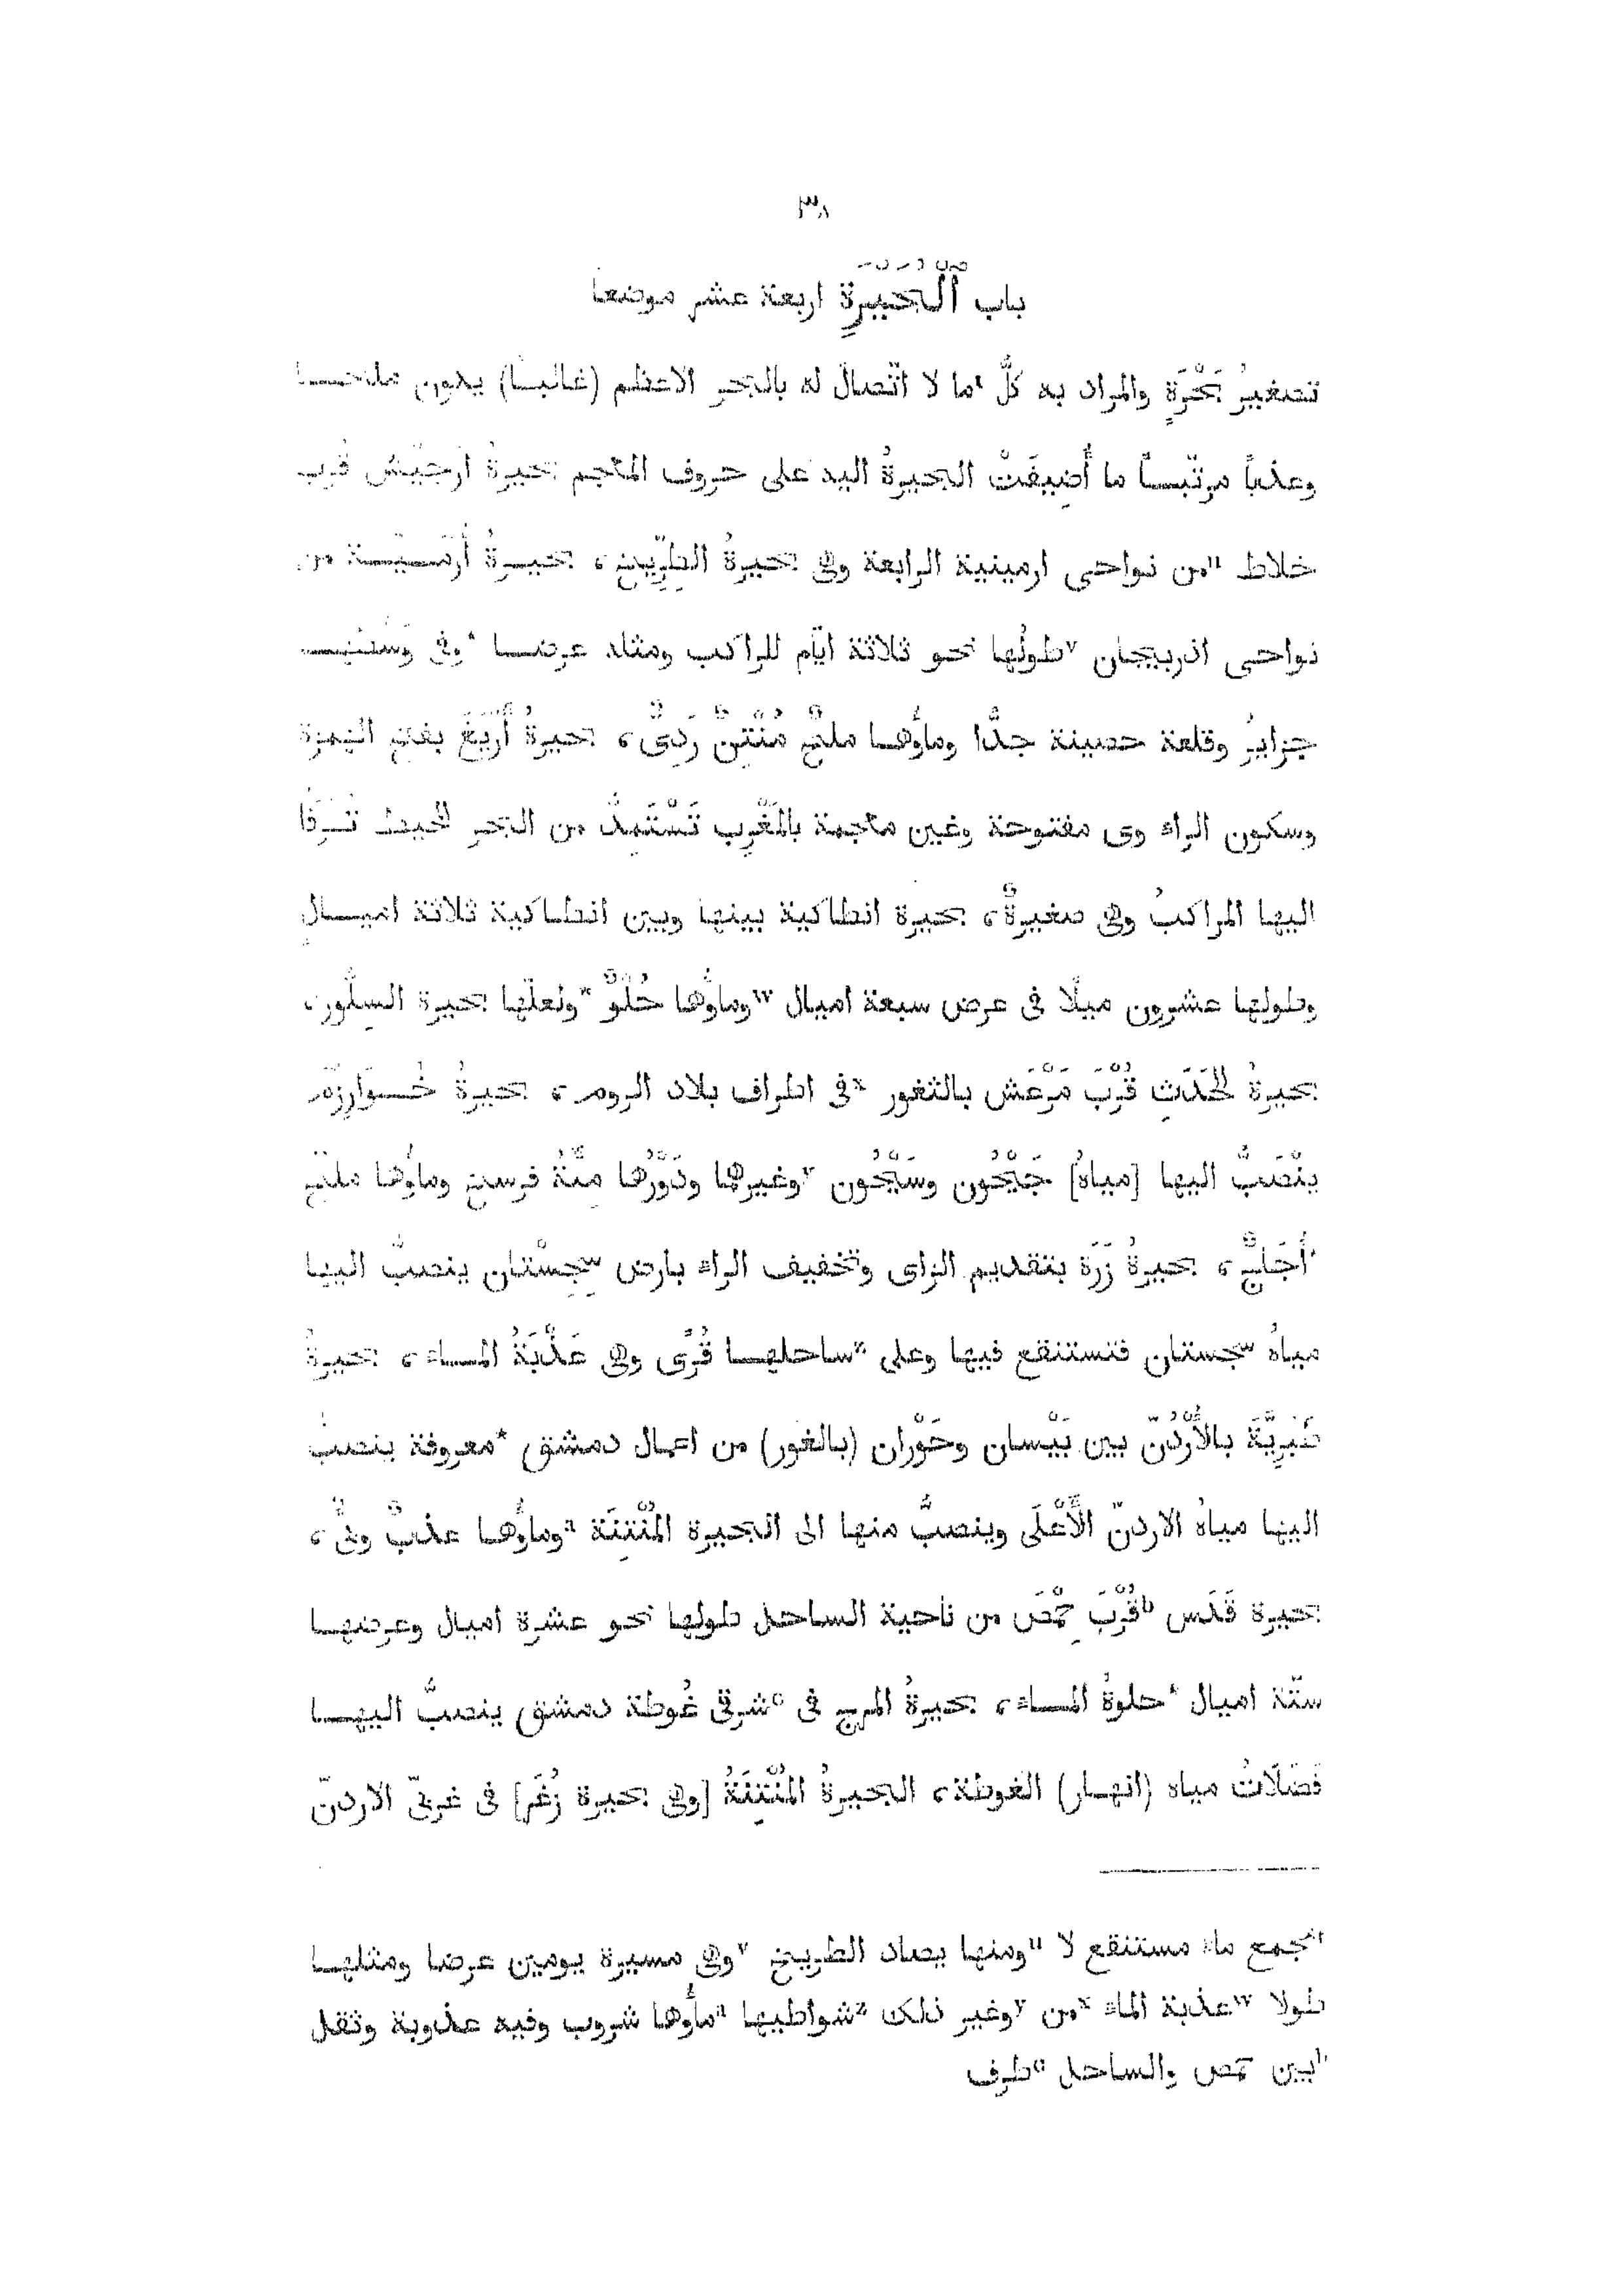 ٣٨
باب ٱلْبُحَيْرَةِ اربعة عشر موضعا
تصغيرُ بَحْرَةٍ والمراد به كلُّ ᵗما لا اتّصال له بالبحر الاعظم (غالبا) يكون ملحا
وعذباً مرتّباً ما أُضِيفَتْ البحيرةُ اليه على حروف المعجم بحيرةُ ارجيش قُرب
خلاط ᵘمن نواحى ارمينية الرابعة وهى بحيرةُ الطِرِّيخ، بحيرةُ أُرْمِيَة من
نواحى اذربيجان ᵛطولُها نحو ثلاثة ايّام للراكب ومثله عرضا *وفى وَسَطها
جزايرُ وقلعة حصينة جدًّا وماؤُها ملحٌ مُنْتِنٌ رَدِىٌّ، بحيرةُ أَرْيَغَ بفتح الهمزة
وسكون الراء وى مفتوحة وغين معجمة بالمَغْرِب تَسْتَمِدُّ من البحر المحيط تُرْفَا
اليها المراكبُ وهى صغيرةٌ، بحيرة انطاكية بينها وبين انطاكية ثلاثة اميال
وطولها عشرون ميلًا فى عرض سبعة اميال ʷوماؤُها حُلْوٌ *ولعلّها بحيرة السِلَّور،
بحيرةُ الحَدَثِ قُرْبَ مَرْعَش بالثغور ˣفى اطراف بلاد الروم، بحيرةُ خُوَارِزْم
ينْصَبُّ اليها [مياهُ] جَيْحُون وسَيْحُون ʸوغيرها ودَوْرُها مِئَةُ فرسخ وماؤُها ملح
*أُجَاجٌ، بحيرةُ زَرَةَ بتقديم الزاى وتخفيف الراء بارض سِجِسْتان ينصبُّ اليها
مياهُ سجستان فتستنقع فيها وعلى ᶻساحلها قُرًى وهى عَذْبَةُ الماء، بحيرةُ
طَبَرِيَّةَ بالأُرْدُنّ بين بَيْسان وحَوْران (بالغور) من اعمال دمشق *معروفة ينصبُّ
اليها مياهُ الاردنّ الأَعْلَى وينصبُّ منها الى البحيرة المُنْتِنَة ᵃوماؤُها عذبٌ ،
بحيرة قَدَس ᵇقُرْبَ حِمْصَ من ناحية الساحل طولها نحو عشرة اميال وعرضها
ستّة اميال *حلوةُ الماء، بحيرةُ المرج فى ᶜشرقى غُوطة دمشق ينصبُّ اليها
فَضَلَاتُ مياه (انهار) الغوطة، البحيرةُ المُنْتِنَةُ [وهى بحيرة زُغَر] فى غربىّ الاردنّ
ᵗمجمع ماء مستنقع لا ᵘومنها يصاد الطريخ ᵛوهى مسيرة يومين عرضا ومثلها
طولا ʷعذبة الماء ˣمن ʸوغير ذلك ᶻشواطيها ᵃمأوها شروب وفيه عذوبة وثقل
ᵇبين حمص والساحل ᶜطرف